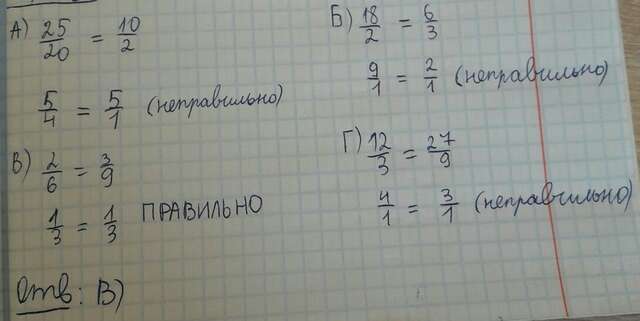 А) 25/20 = 10/2
5/4 = 5/1 (неправильно)
Б) 18/2 = 6/3
9/1 = 2/1 (неправильно)
В) 2/6 = 3/9
1/3 = 1/3 ПРАВИЛЬНО
Г) 12/3 = 27/9
4/1 = 3/1 (неправильно)
Отв: В)